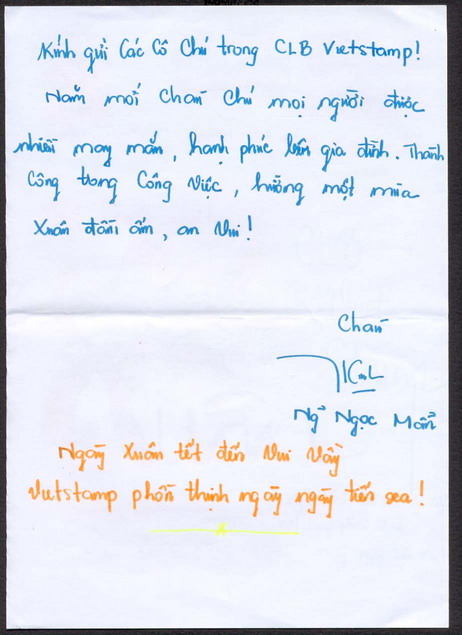 Kính gửi Các Cô Chú trong CLB Vietstamp!
Năm mới Chân Chú mọi người được
nhiều may mắn, hạnh phúc bên gia đình. Thành
Công trong Công Việc, hưởng một mùa
Xuân đầm ấm, an Vui!
Chân
Ng Ngọc Mẫn
Ngày Xuân tết đến Vui Vầy
Vietstamp phồn thịnh ngày ngày tiến sea!